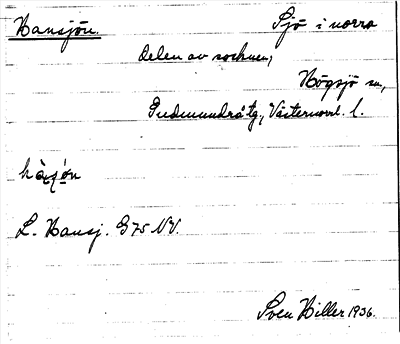 Hansjön. Sjö i norra
delen av socknen,
Högsjö sn,
Gudmundrå tg, Västernorrl. l.
L. Hansj. G75 NV.
Sven Hiller 1936.